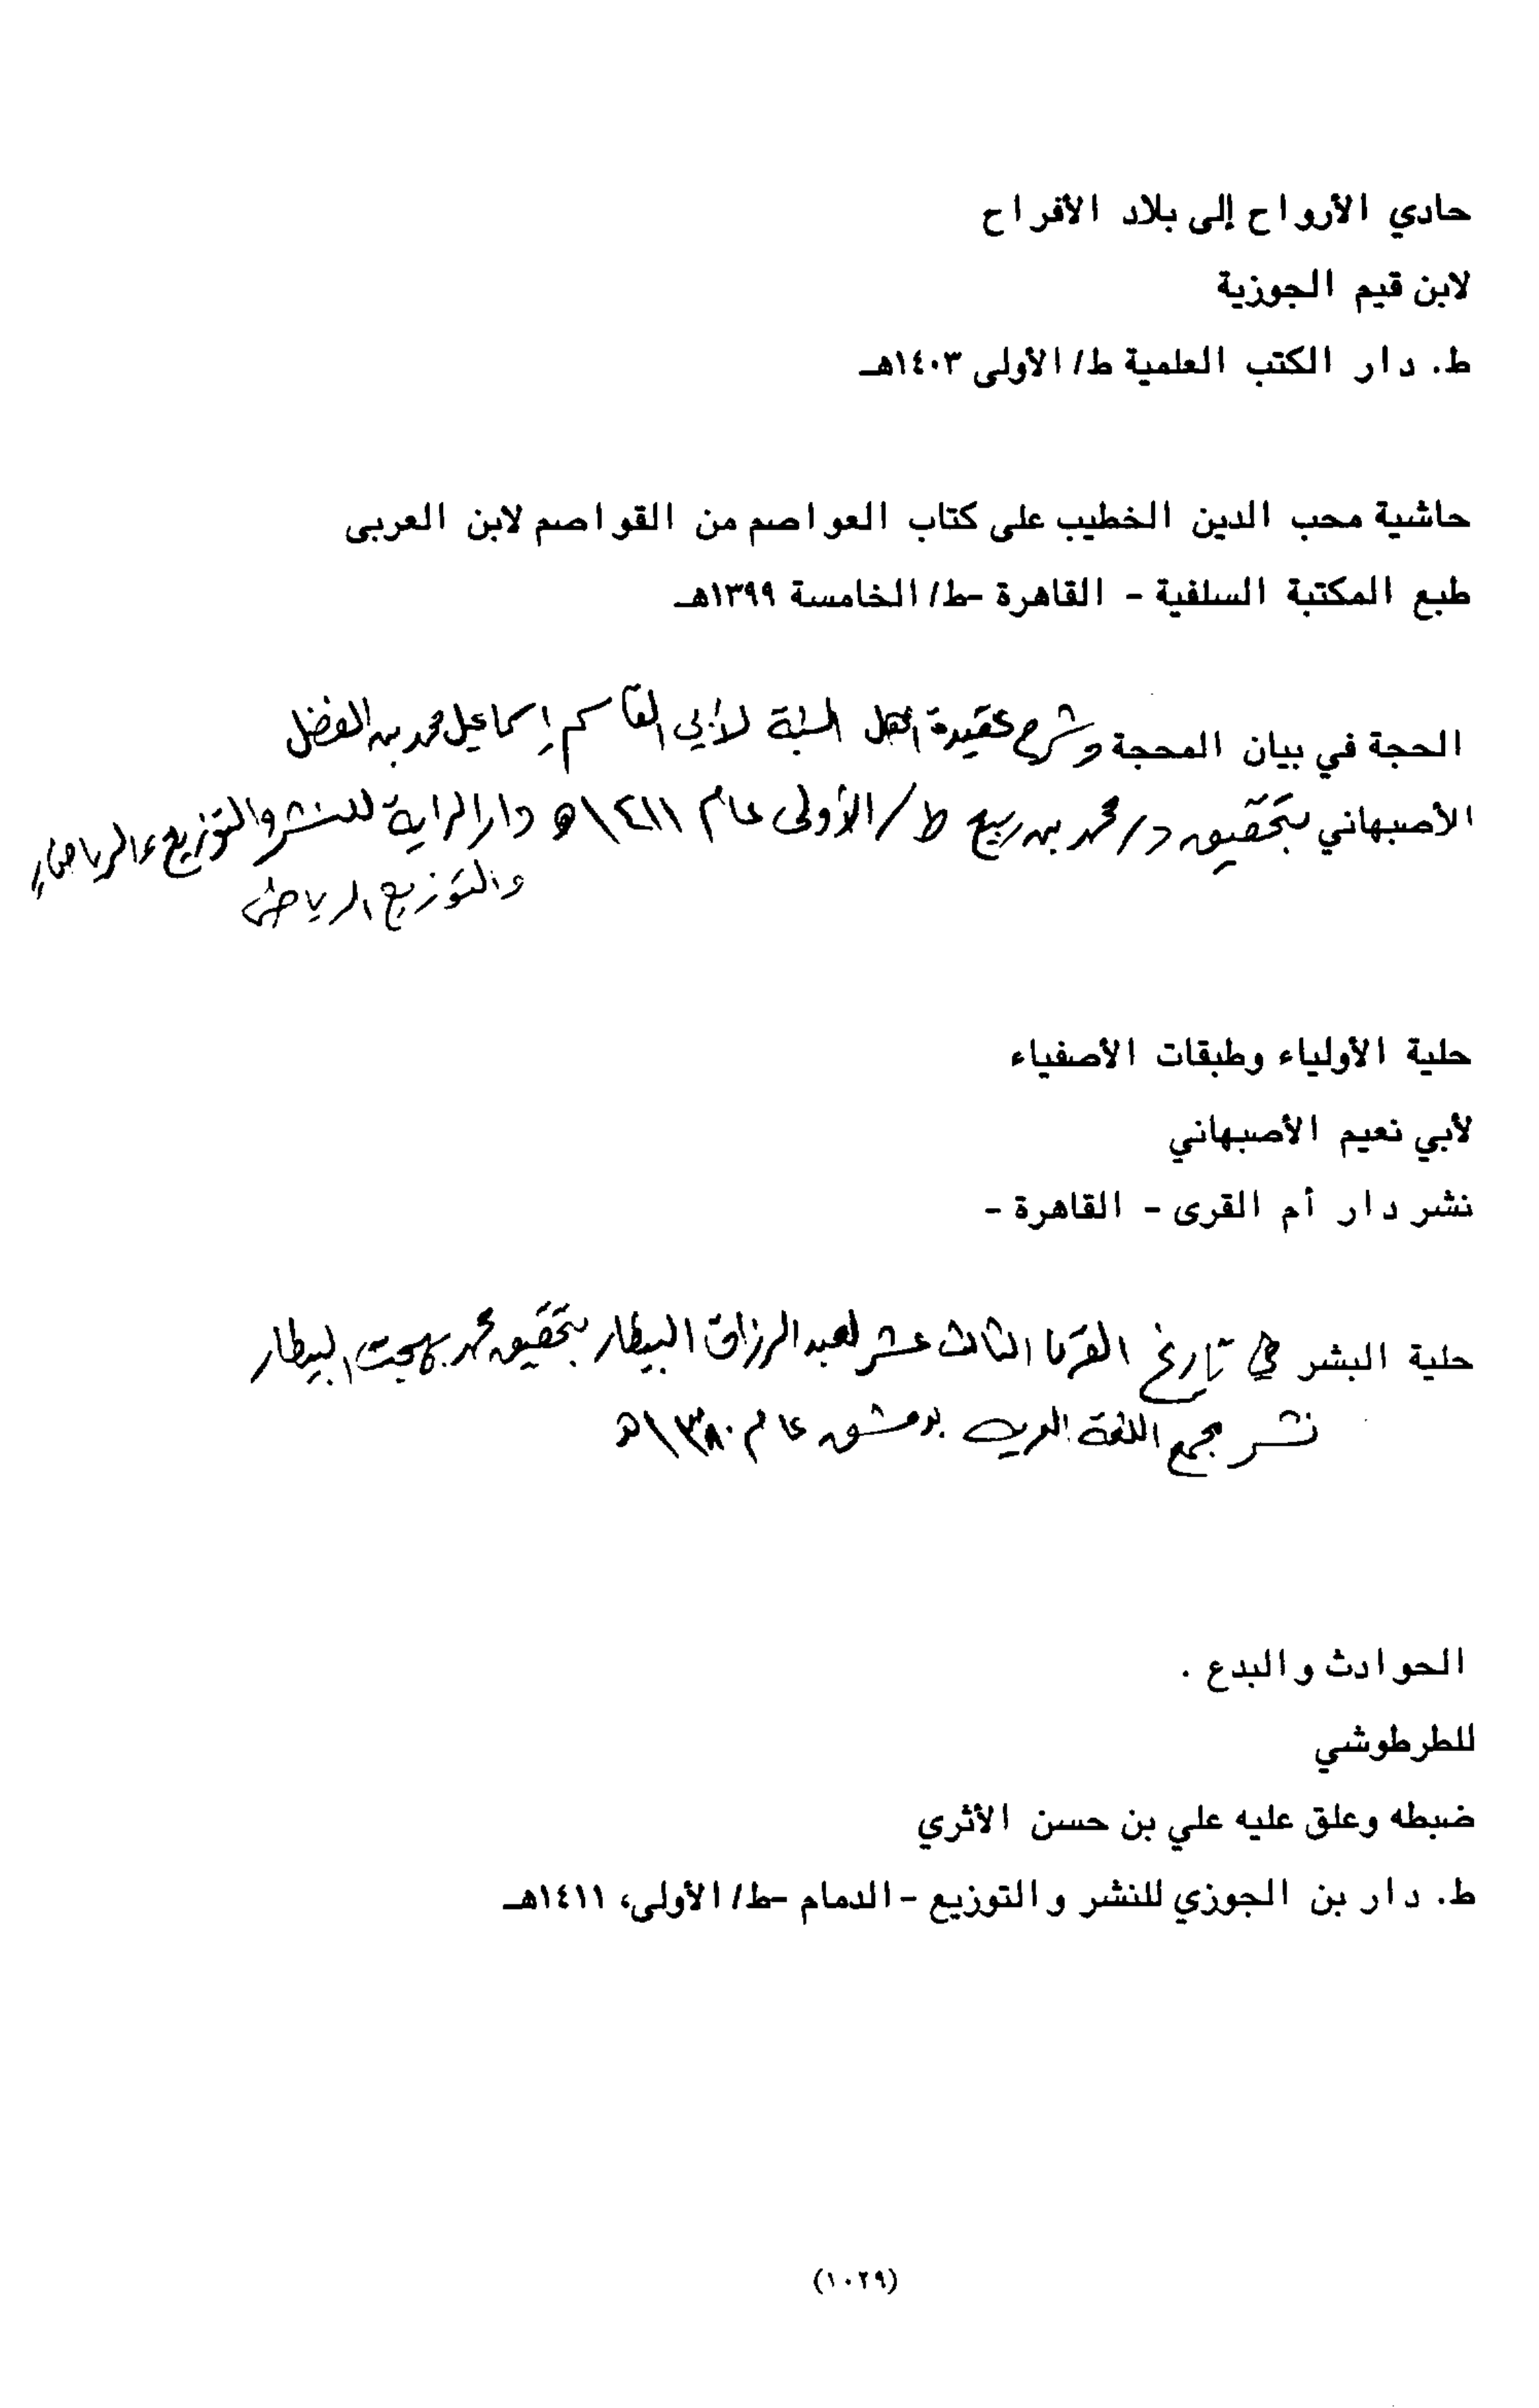 حادي الأرواح إلى بلاد الأفراح
لابن قيم الجوزية
ط. دار الكتب العلمية ط/ الأولى ١٤٠٣هـ
حاشية محب الدين الخطيب على كتاب العواصم من القواصم لابن العربى
طبع المكتبة السلفية - القاهرة -ط/ الخامسة ١٣٩٩هـ
الحجة في بيان المحجة وشرح عقيدة أهل السنة لأبي القاسم إسماعيل محمد بن الفضل
الأصبهاني بتحقيق د/ محمد بن ربيع ط/ الأولى عام ١٤١١هـ دار الراية للنشر والتوزيع
والتوزيع الرياض
حلية الأولياء وطبقات الأصفياء
لأبي نعيم الأصبهاني
نشر دار أم القرى - القاهرة -
حلية البشر في تاريخ القرن الثالث عشر لعبد الرزاق البيطار بتحقيق محمد بهجت البيطار
نشر مجمع اللغة العربية بدمشق عام ١٣٨٠هـ
الحوادث والبدع .
للطرطوشي
ضبطه وعلق عليه علي بن حسن الأثري
ط. دار بن الجوزي للنشر والتوزيع - الدمام -ط/ الأولى، ١٤١١هـ
(١٠٢٩)